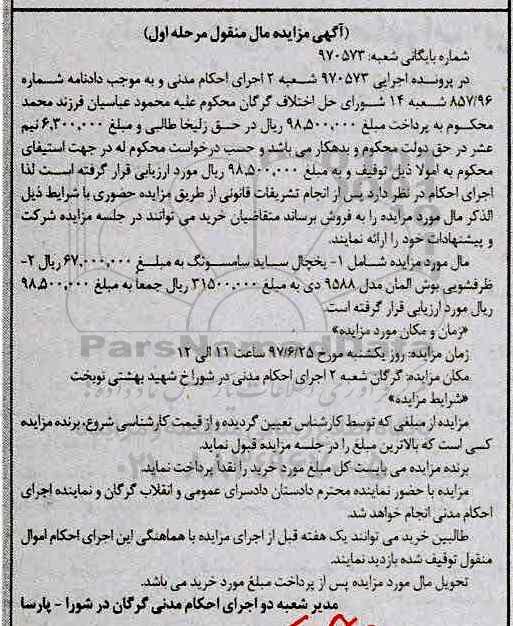 (آگهی مزایده مال منقول مرحله اول)
شماره بایگانی شعبه: ۹۷۰۵۷۳
در پرونده اجرایی ۹۷۰۵۷۳ شعبه ۲ اجرای احکام مدنی و به موجب دادنامه شماره
۸۵۷/۹۶ شعبه ۱۴ شورای حل اختلاف گرگان محکوم علیه محمود عباسیان فرزند محمد
محکوم به پرداخت مبلغ ۹۸,۵۰۰,۰۰۰ ریال در حق زلیخا طالبی و مبلغ ۶,۳۰۰,۰۰۰ نیم
عشر در حق دولت محکوم و بدهکار می باشد و حسب درخواست محکوم له در جهت استیفای
محکوم به اموالا ذیل توقیف و به مبلغ ۹۸,۵۰۰,۰۰۰ ریال مورد ارزیابی قرار گرفته است لذا
اجرای احکام در نظر دارد پس از انجام تشریفات قانونی از طریق مزایده حضوری با شرایط ذیل
الذکر مال مورد مزایده را به فروش برساند متقاضیان خرید می توانند در جلسه مزایده شرکت
و پیشنهادات خود را ارائه نمایند.
مال مورد مزایده شامل ۱- یخچال ساید سامسونگ به مبلغ ۶۷,۰۰۰,۰۰۰ ریال ۲-
ظرفشویی بوش المان مدل ۹۵۸۸ دی به مبلغ ۳۱۵۰۰,۰۰۰ ریال جمعاً به مبلغ ۹۸,۵۰۰,۰۰۰
ریال مورد ارزیابی قرار گرفته است.
«زمان و مکان مورد مزایده»
زمان مزایده: روز یکشنبه مورخ ۹۷/۶/۲۵ ساعت ۱۱ الی ۱۲
مکان مزایده: گرگان شعبه ۲ اجرای احکام مدنی در شورا خ شهید بهشتی نوبخت
«شرایط مزایده»
مزایده از مبلغی که توسط کارشناس تعیین گردیده و از قیمت کارشناسی شروع، برنده مزایده
کسی است که بالاترین مبلغ را در جلسه مزایده قبول نماید.
برنده مزایده می بایست کل مبلغ مورد خرید را نقداً پرداخت نماید.
مزایده با حضور نماینده محترم دادستان دادسرای عمومی و انقلاب گرگان و نماینده اجرای
احکام مدنی انجام خواهد شد.
طالبین خرید می توانند یک هفته قبل از اجرای مزایده با هماهنگی این اجرای احکام اموال
منقول توقیف شده بازدید نمایند.
تحویل مال مورد مزایده پس از پرداخت مبلغ مورد خرید می باشد.
مدیر شعبه دو اجرای احکام مدنی گرگان در شورا - پارسا
ParsNamadData